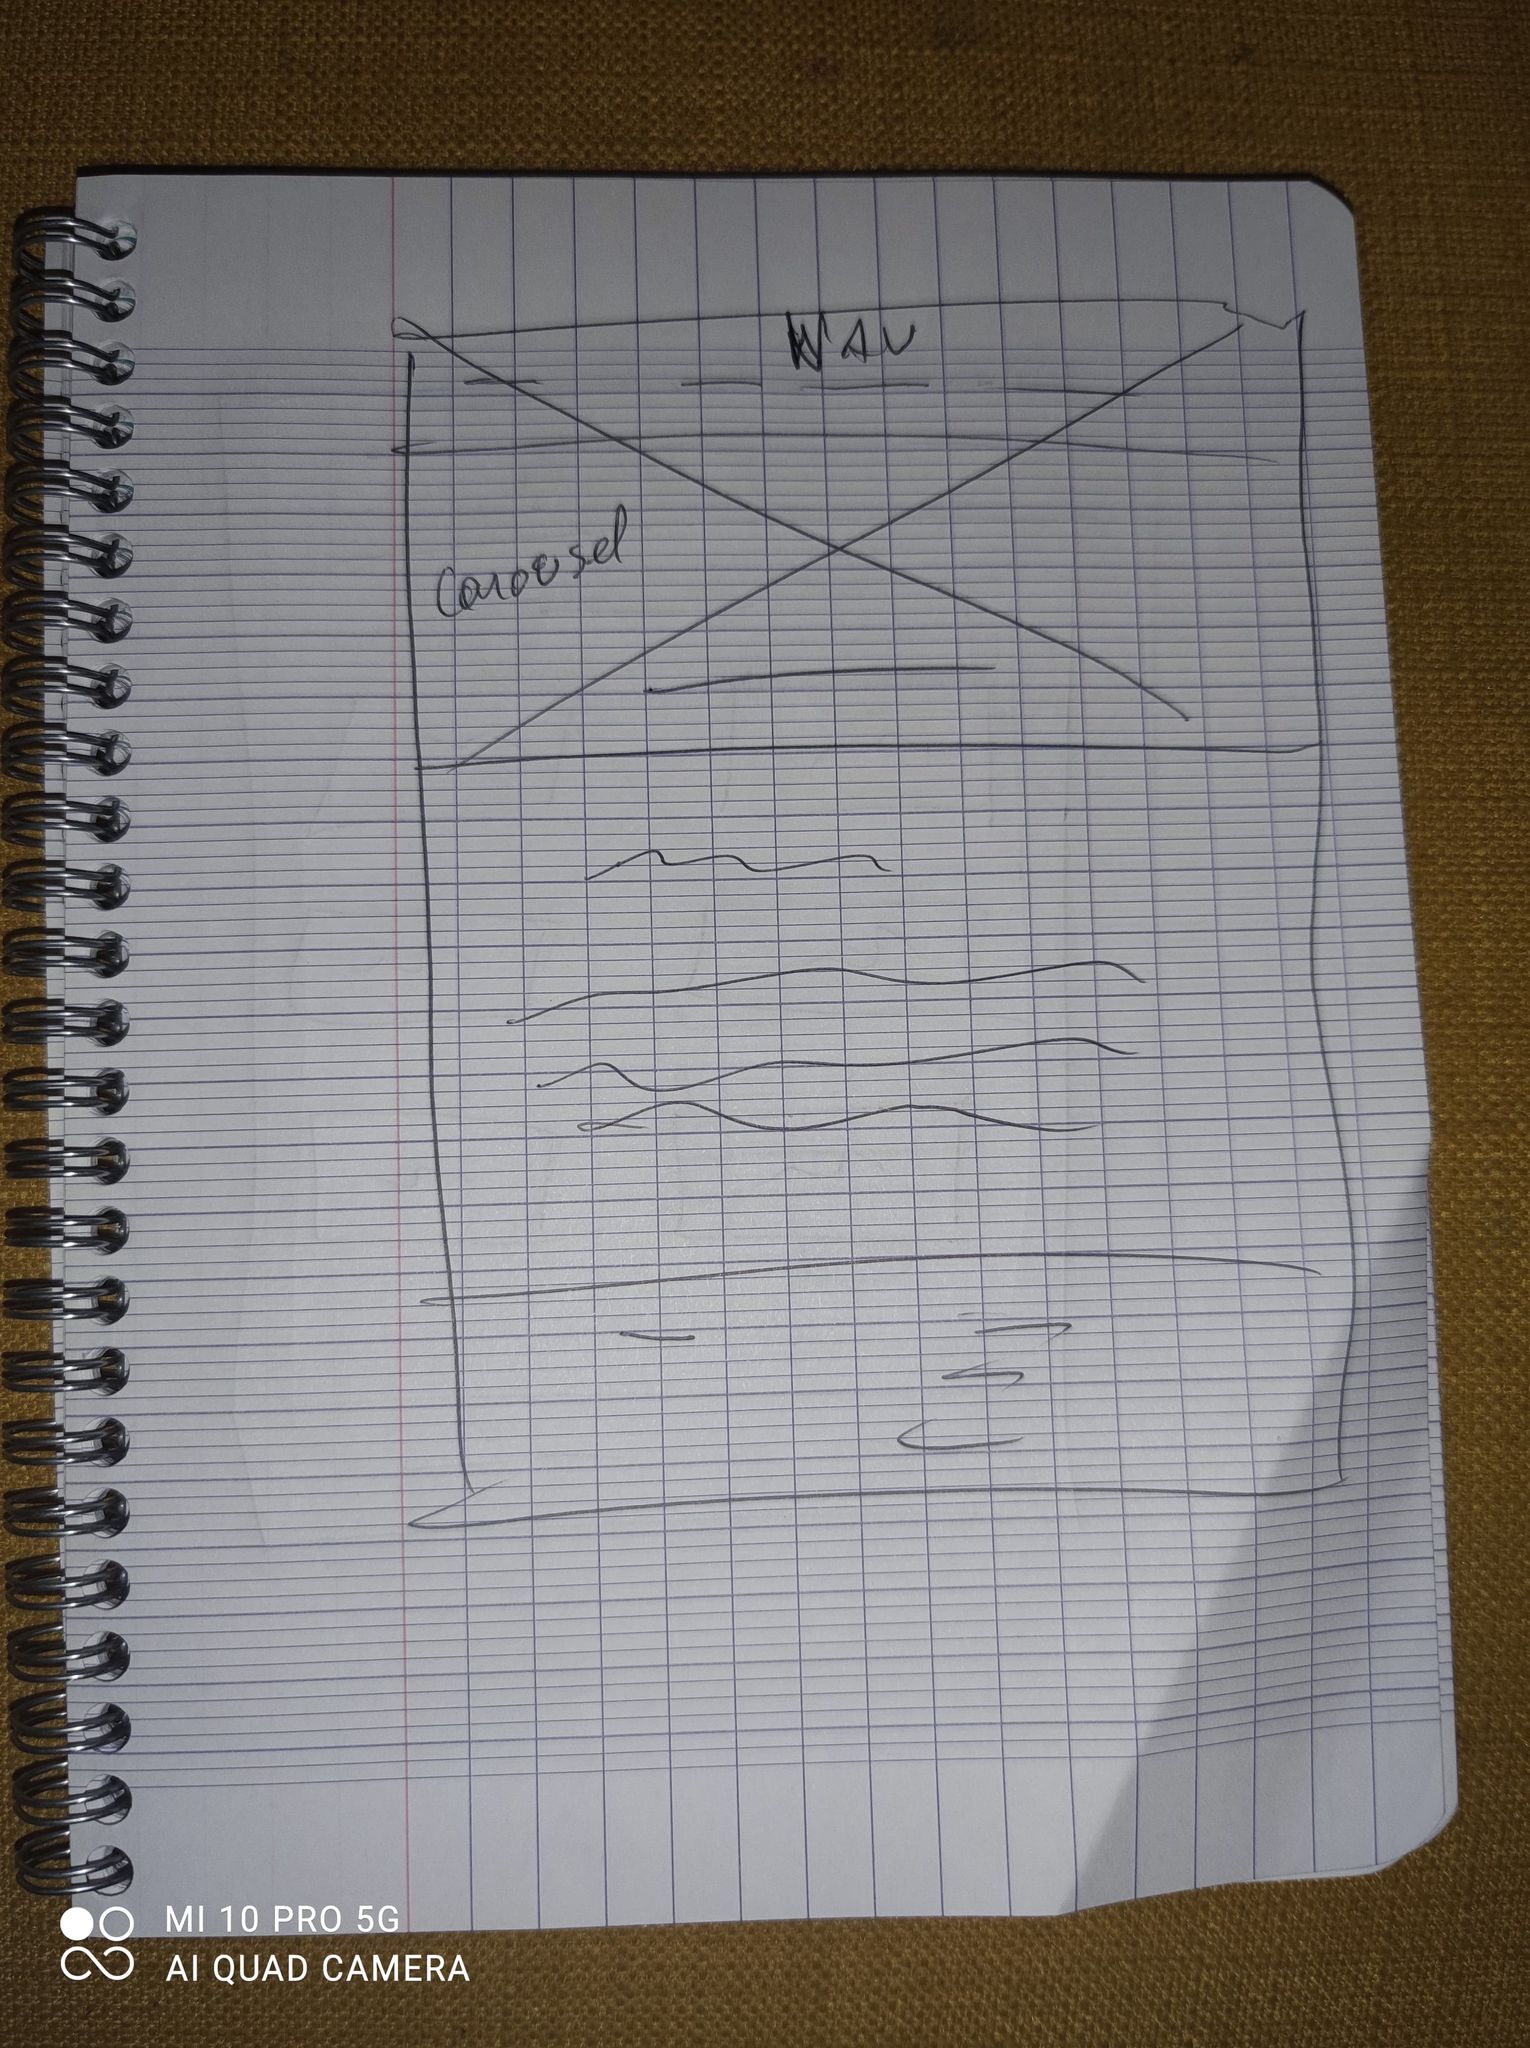 NAV
Carousel
MI 10 PRO 5G
AI QUAD CAMERA